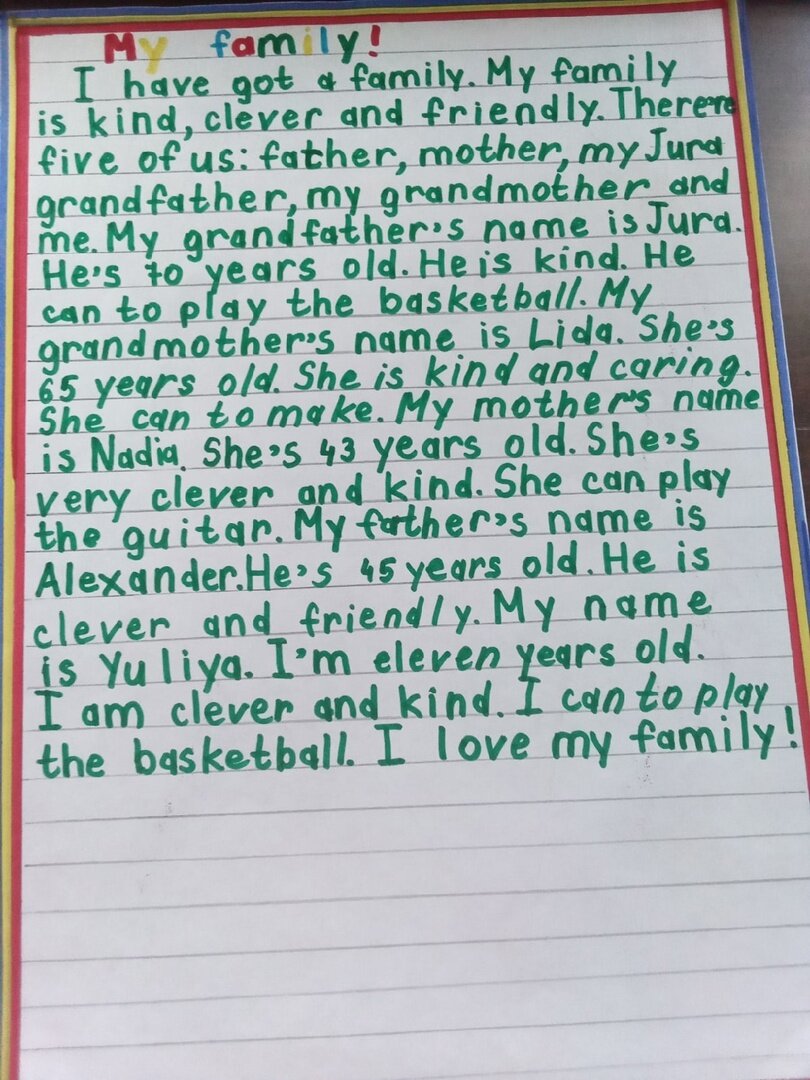 My family!
I have got a family. My family
is kind, clever and friendly. There're
five of us: father, mother, my Jura
grandfather, my grandmother and
me. My grandfather's name is Jura.
He's 70 years old. He is kind. He
can to play the basketball. My
grandmother's name is Lida. She's
65 years old. She is kind and caring.
She can to make. My mother's name
is Nadia. She's 43 years old. She's
very clever and kind. She can play
the guitar. My father's name is
Alexander. He's 45 years old. He is
clever and friendly. My name
is Yuliya. I'm eleven years old.
I am clever and kind. I can to play
the basketball. I love my family!